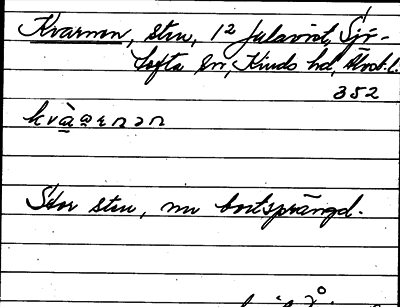 Kvarnen, sten, 1² Julavist, Sjö-
tofta sn, Kinds hd, Älvsb. l.
352
kvàaɛnən
Stor sten, nu bortsprängd.